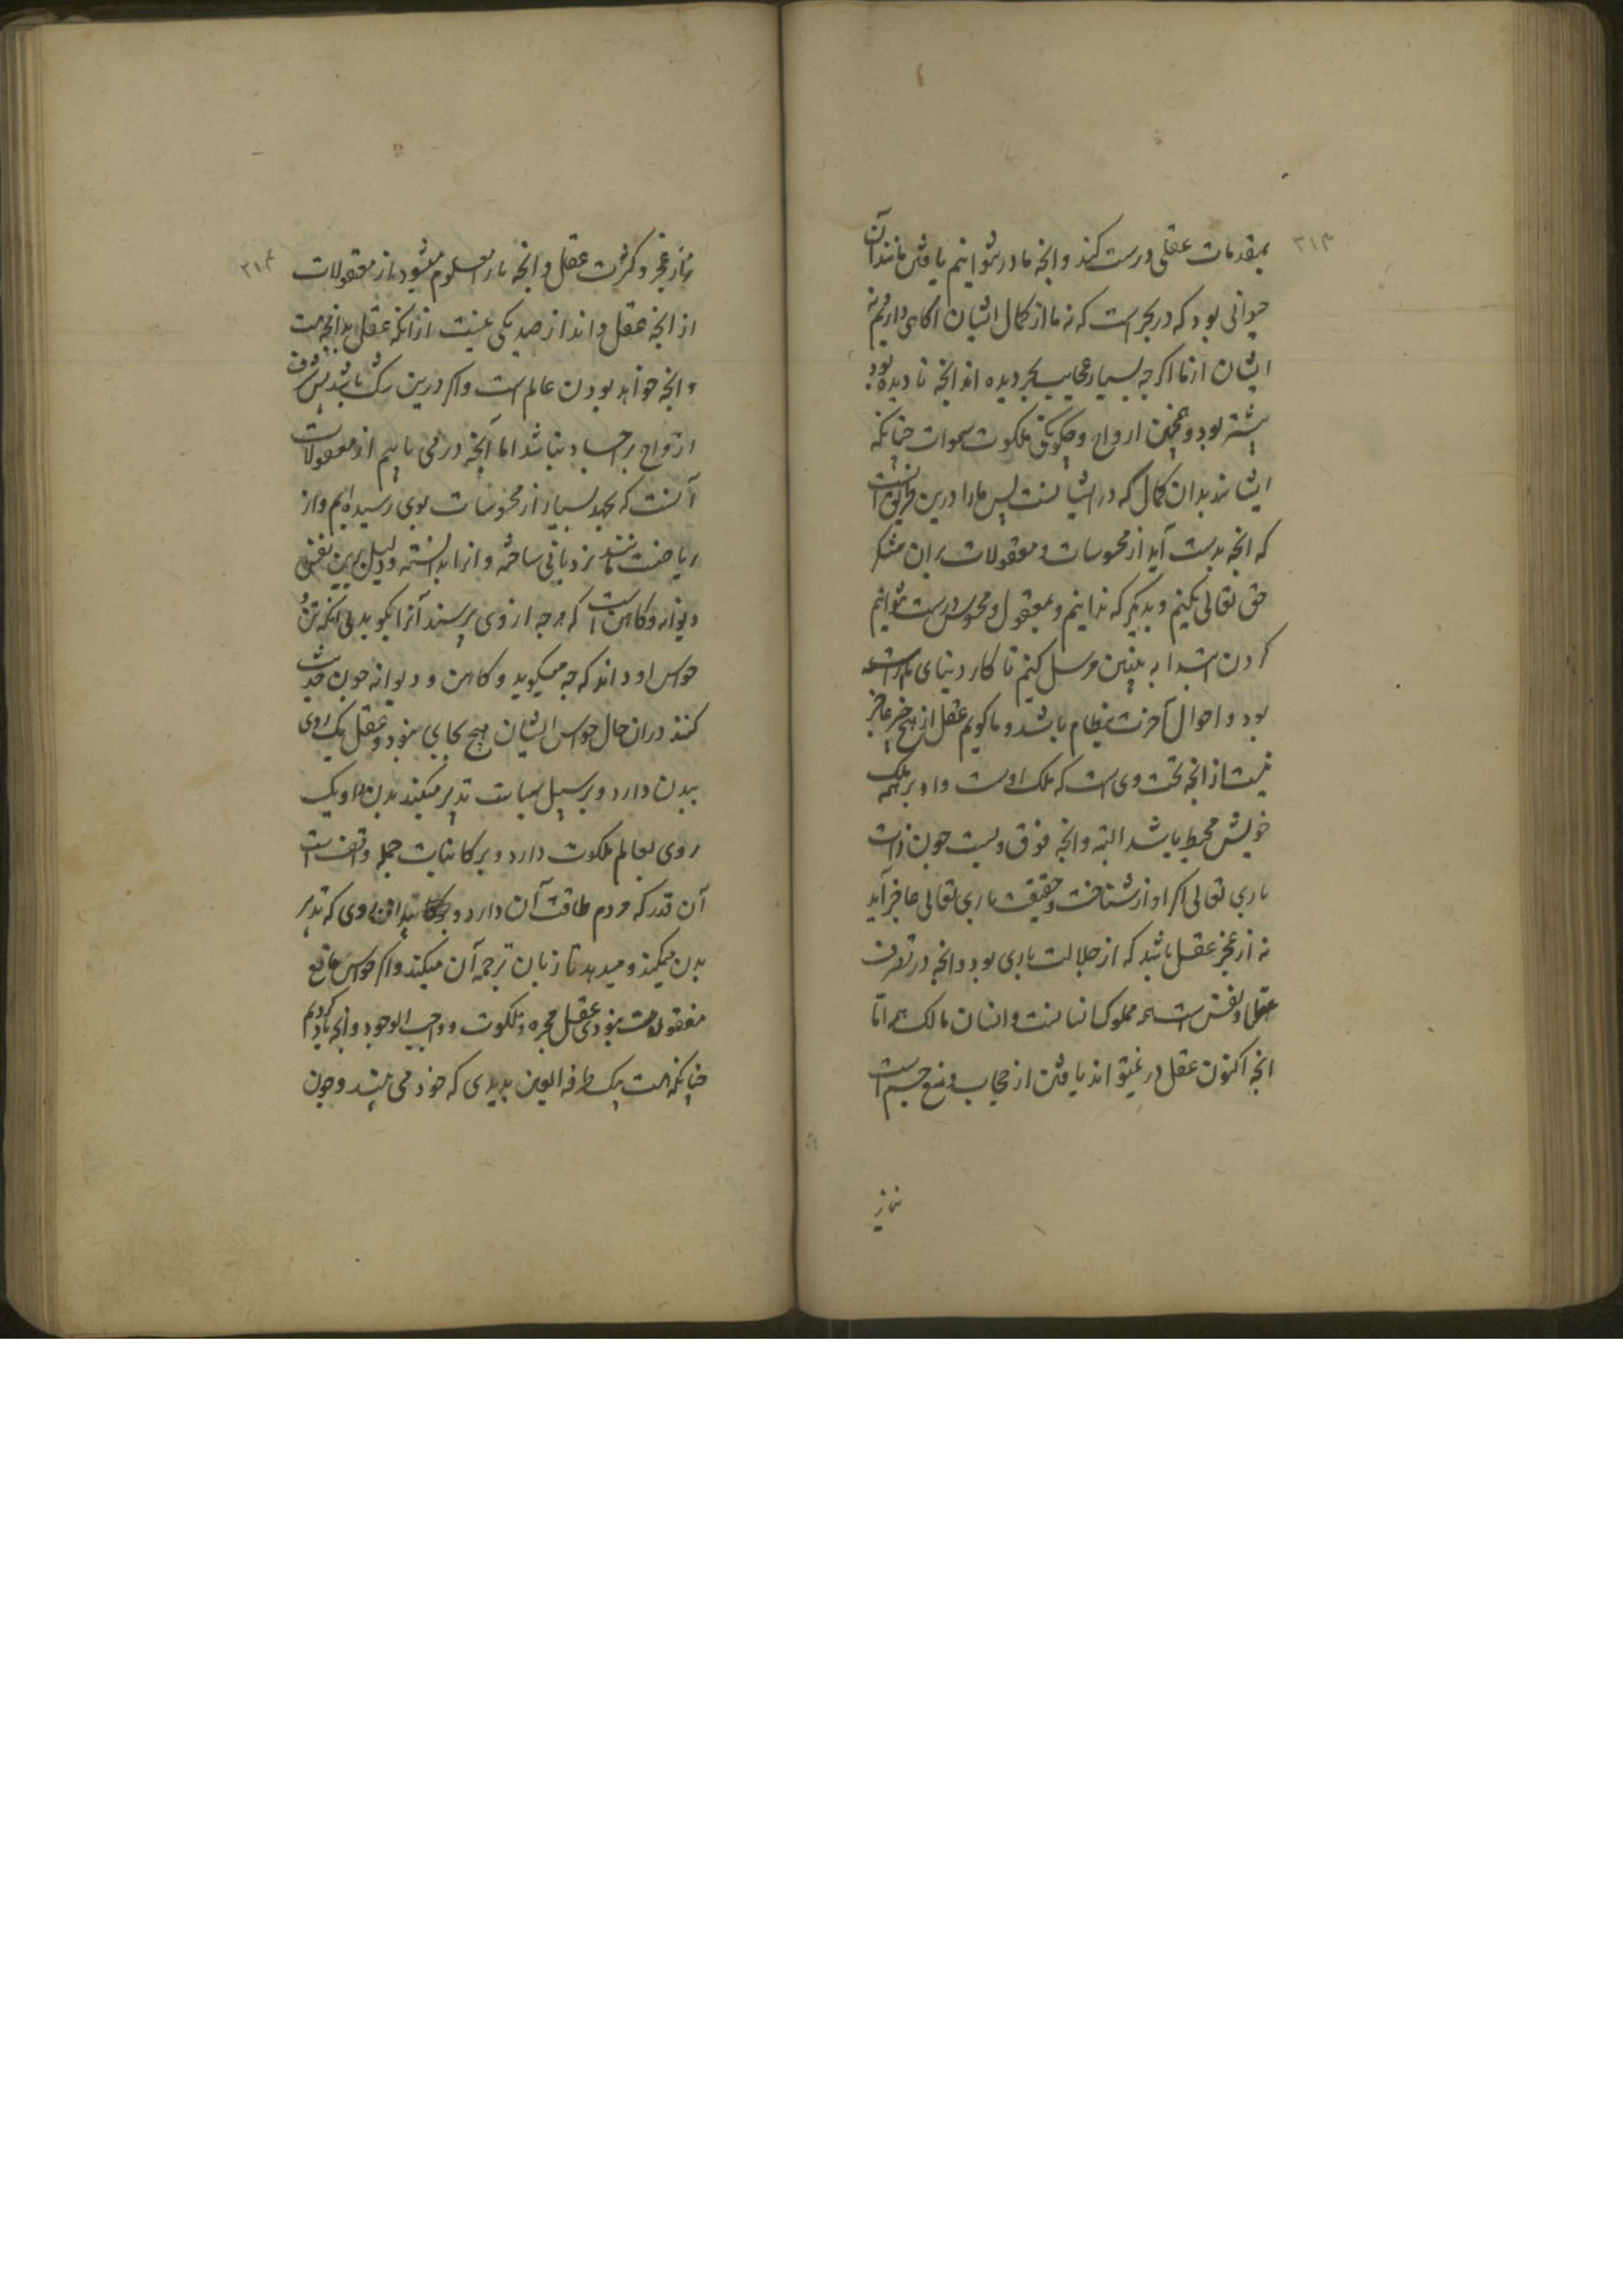 ۳۱۳
بمقدمات عقلی درست کند وانچه ما درنتوانیم یافتن مانند آن
حیوانی بود که در بحر است که نه ما از کمال ایشان اکاهی داریم نه
ایشان از ما اکرچه بسیار عجایب بحر دیده اند انچه نادیده بود
بیشتر بود و همچنین ارواح و چکونکی ملکوت سموات چنانکه
ایشانند بدان کمال که در ایشانست پس ما را درین
که انچه بدست آید از محسوسات و معقولات بران شکر
حق تعالی بکنیم و بدیگر که ندانیم و بمعقول و محسوس درست نتوانیم
کردن اقتدا به مرسل کنیم تا کار دنیای ما راست
بود و احوال آخرت بنظام باشد و ما کویم عقل از هیچ چیز عاجز
نیست از انچه تحت وی است که ملک اوست و او بر همه ملک
خویش محیط باشد البته وانچه فوق ویست چون ذات
باری تعالی اکر او از شناخت حقیقت باری تعالی عاجز آید
نه از عجز عقل باشد که از جلالت باری بود وانچه در تصرف
عقل و نفس است همه مملوک انسانست و انسان مالک همه اما
انچه اکنون عقل در نمیتواند یافتن از حجاب و منع جسم است
نیاز
۳۱۴
نه از عجز و کثرت عقل وانچه ما را معلوم میشود از معقولات
از انچه عقل داند از صد یکی نیست از انکه عقل بدانچه هست
وانچه خواهد بودن عالم است و اکر درین شک باشد پس شرف
ارواح بر اجساد نباشد اما آنچه در می یابیم از معقولات
آنست که بجهد بسیار از محسوسات بوی رسیده ایم و از
ریاضت مانند نردبانی ساخته و انرا بدانسته و دلیل برین نفس
دیوانه و کاهن است که هرچه از وی پرسند آنرا بکوید بی انکه
حواس او داند که چه میکوید و کاهن و دیوانه چون حدیث
کنند دران حال حواس ایشان هیچ بجای نبود و عقل یک روی
ببدن دارد و بر سبیل سیاست تدبیر میکند بدن را و یک
روی بعالم ملکوت دارد و بر کاینات جمله واقف است
آن قدر که مردم طاقت آن دارد و روی که تدبیر
بدن میکند و میدهد تا زبان ترجمه آن میکند و اکر حواس مانع
معقولات نبودی عقل مجرد و ملکوت و واجب الوجود وانچه یاد کردیم
چنانکه هست بیک طرفة العین بدیدی که خود می بیند و چون